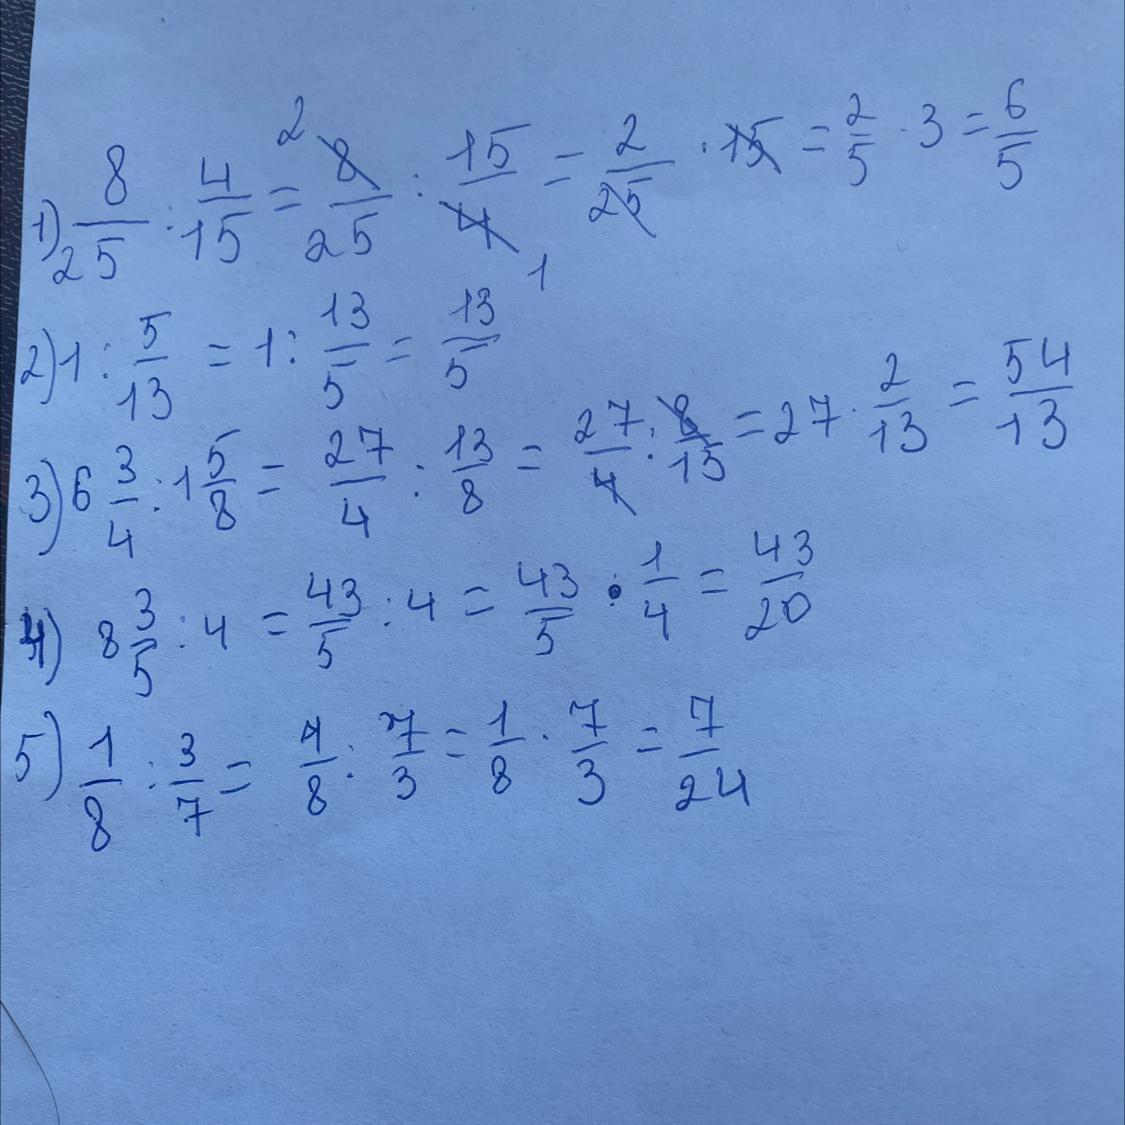 1) 8/25 : 4/15 = 2 8/25 : 15/4 1 = 2/25 · 15 = 2/5 · 3 = 6/5
2) 1 : 5/13 = 1 : 13/5 = 13/5
3) 6 3/4 : 1 5/8 = 27/4 : 13/8 = 27/4 : 8/13 = 27 · 2/13 = 54/13
4) 8 3/5 : 4 = 43/5 : 4 = 43/5 · 1/4 = 43/20
5) 1/8 : 3/7 = 1/8 : 7/3 = 1/8 · 7/3 = 7/24